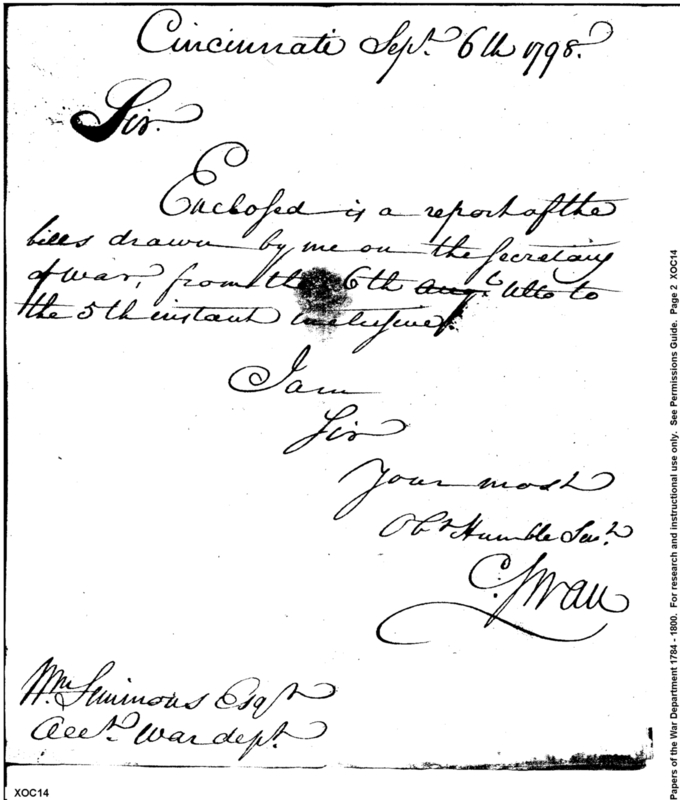 Cincinnate Sept. 6th 1798.
Sir.
Enclosed is a report of the
bills drawn by me on the Secretary
of war, from the 6th Augt. Ulto to
the 5th instant inclusive.
I am
Sir
Your most
Obt Humble Sert.
C. Swan
Wm Simmons Esqr
Acct. War dept.
XOC14
Papers of the War Department 1784 - 1800. For research and instructional use only. See Permissions Guide. Page 2 XOC14